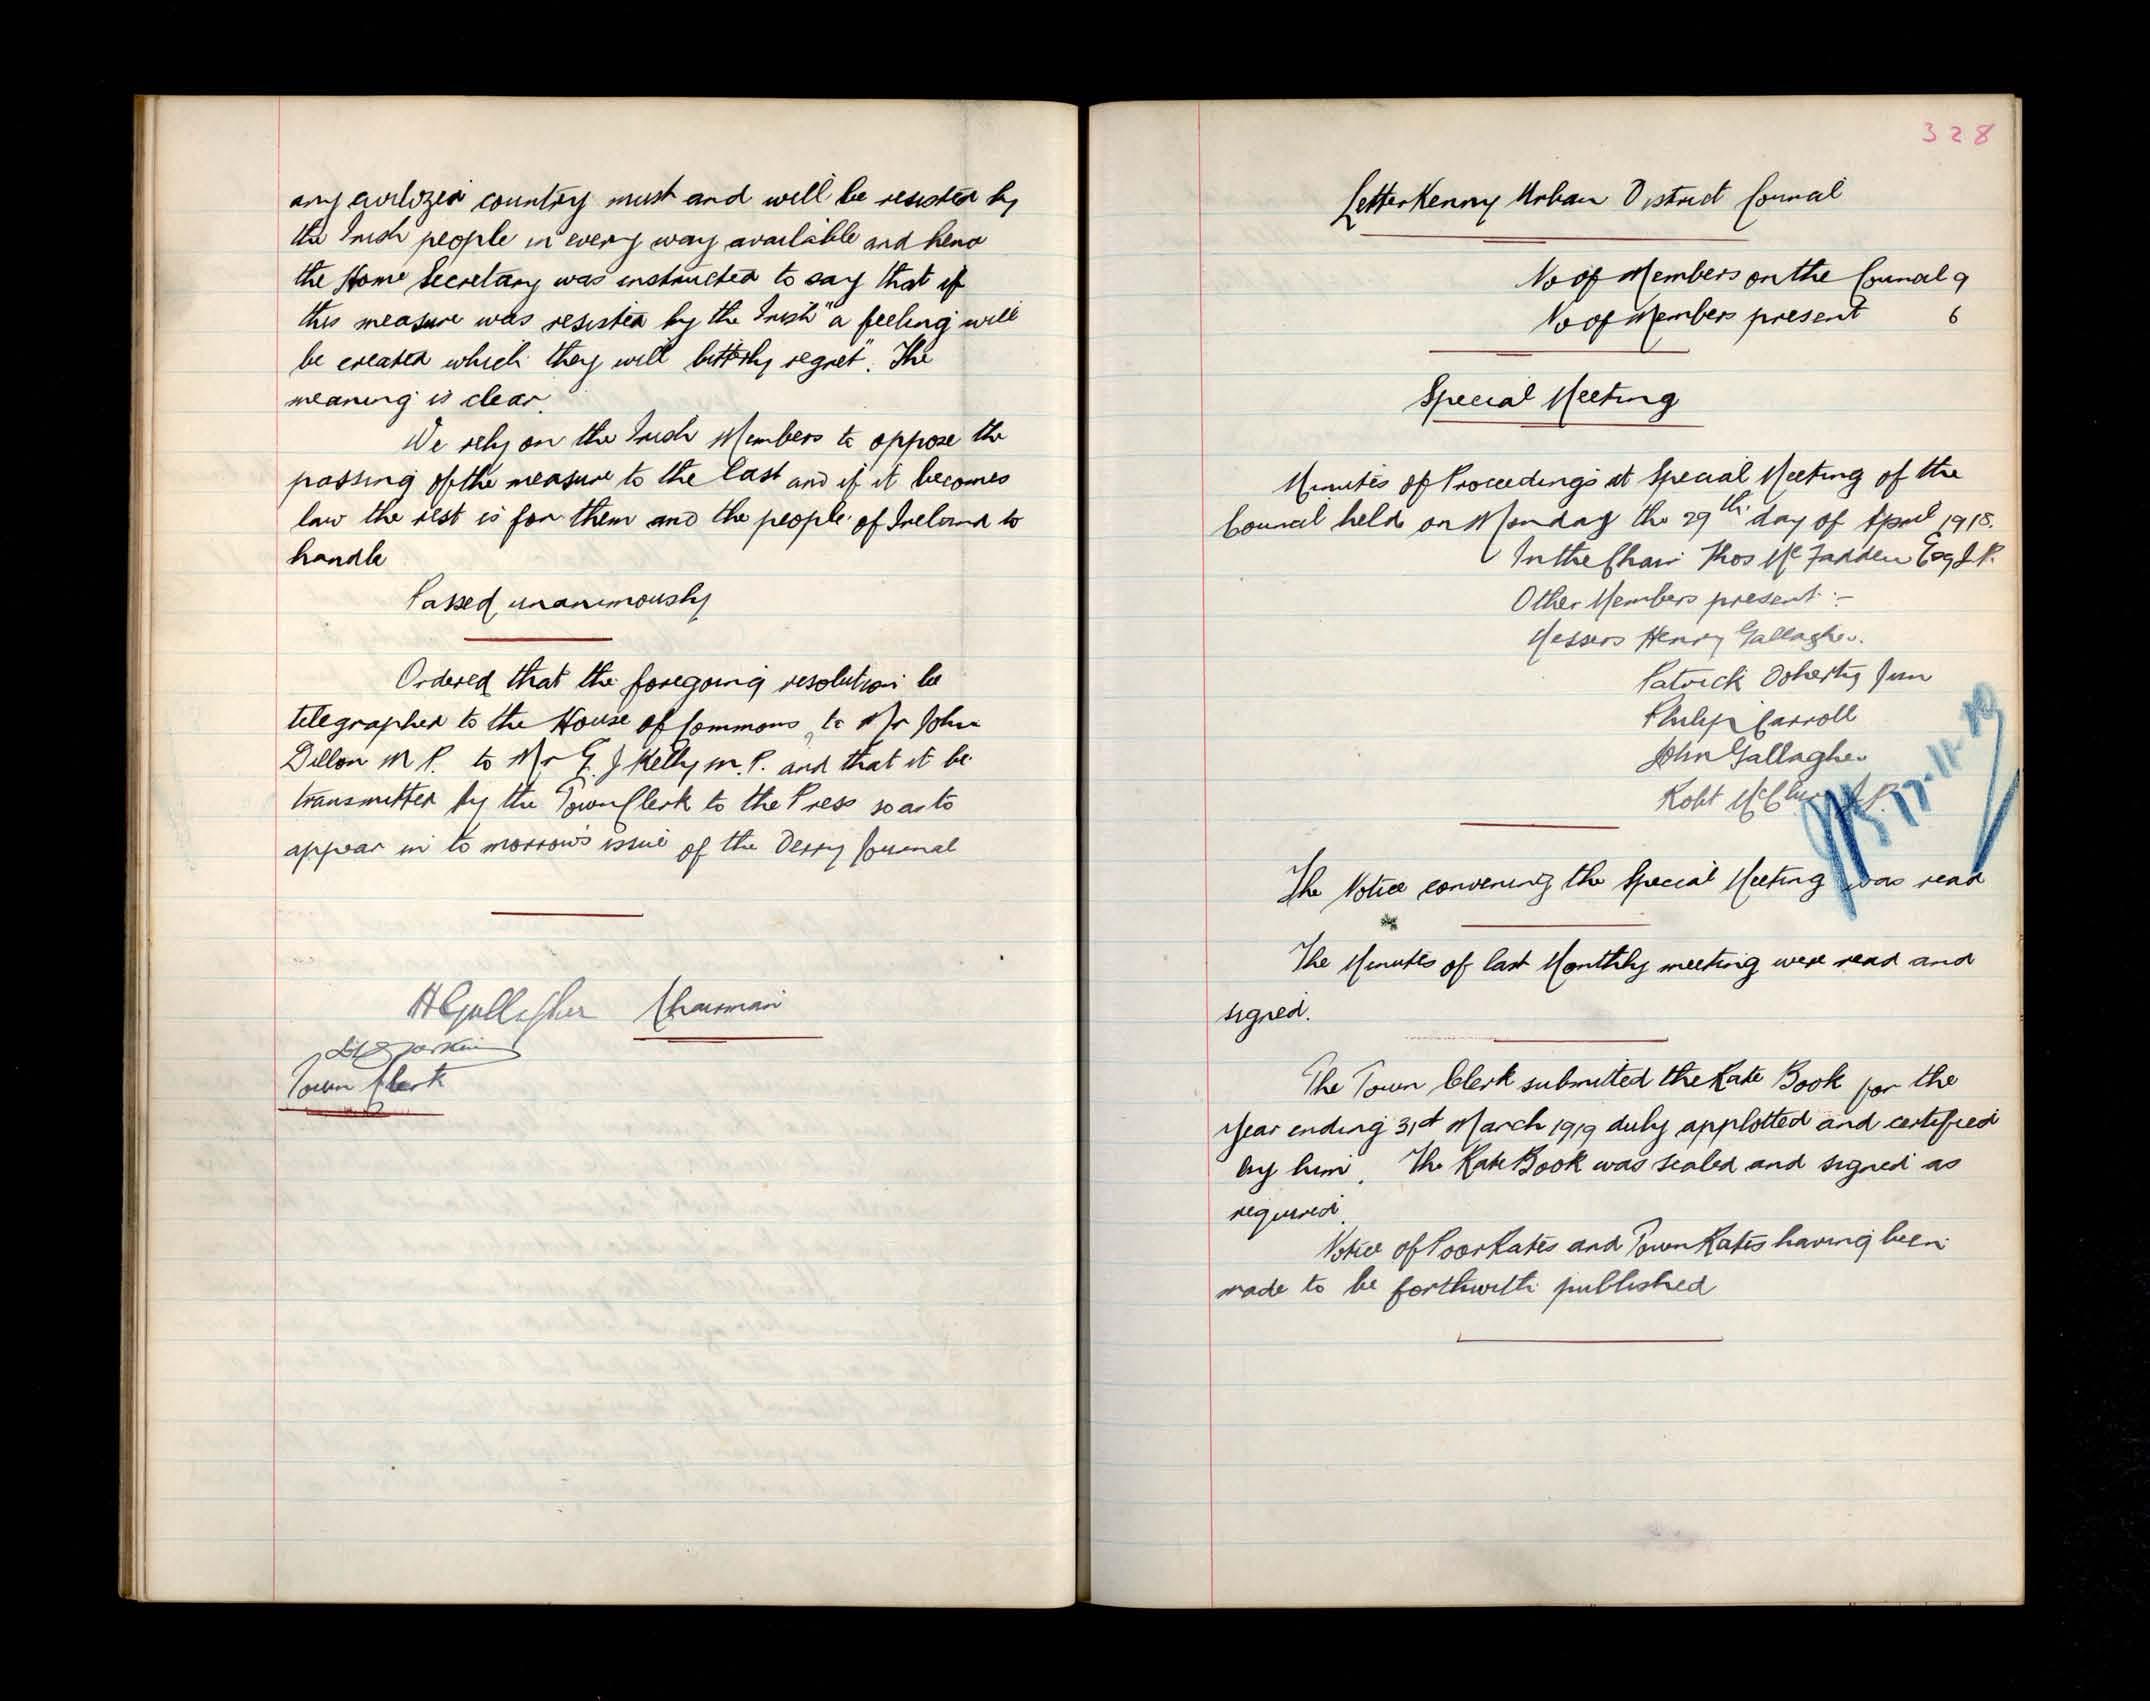 any civilized country must and will be resisted by
the Irish people in every way available and hence
the Home Secretary was instructed to say that if
this measure was resisted by the Irish "a feeling will
be created which they will bitterly regret". The
meaning is clear.
We rely on the Irish Members to oppose the
passing of the measure to the last and if it becomes
law the rest is for them and the people of Ireland to
handle
Passed unanimously
Ordered that the foregoing resolution be
telegraphed to the House of Commons, to Mr John
Dillon M P. to Mr E. J Kelly M.P. and that it be
transmitted by the Town Clerk to the Press so as to
appear in to morrow's issue of the Derry Journal
H Gallagher Chairman
Town Clerk
328
Letterkenny Urban District Council
No of Members on the Council 9
No of Members present 6
Special Meeting
Minutes of Proceedings at Special Meeting of the
Council held on Monday the 29th day of April 1918.
In the Chair Thos Mc Fadden Esq J.P.
Other Members present :-
Messers Henry Gallagher.
Patrick Doherty Jun
Philip Carroll
John Gallagher
Robt McClure J.P.
The Notice convening the Special Meeting was read
The Minutes of last Monthly meeting were read and
signed.
The Town Clerk submitted the Rate Book for the
Year ending 31st March 1919 duly applotted and certified
by him. The Rate Book was sealed and signed as
required.
Notice of Poor Rates and Town Rates having been
made to be forthwith published